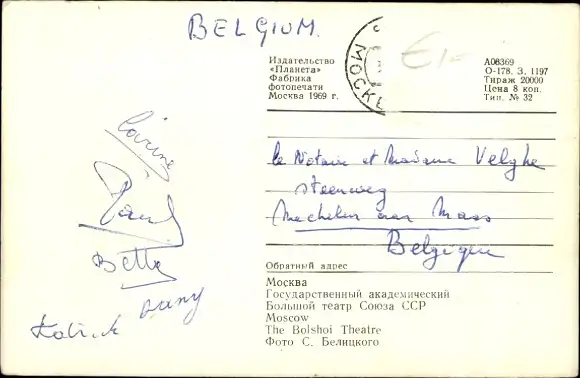 BELGIUM.
Издательство
«Планета»
Фабрика
фотопечати
Москва 1969 г.
МОСКВА
€1-
А08369
О-178. З. 1197
Тираж 20000
Цена 8 коп.
Тип. № 32
le Notaire et Madame Velghe
steenweg
Mechelen aan Maas
Belgique
Обратный адрес
Москва
Государственный академический
Большой театр Союза ССР
Moscow
The Bolshoi Theatre
Фото С. Белицкого
Paul
Bette
Dany